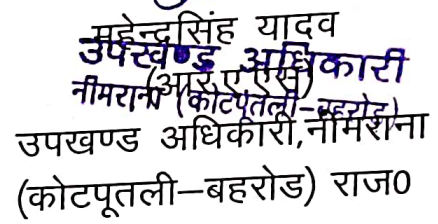 महेन्द्रसिंह यादव
उपखण्ड अधिकारी
(आर.ए.एस)
नीमराना (कोटपूतली-बहरोड)
उपखण्ड अधिकारी,नीमराना
(कोटपूतली–बहरोड) राज0